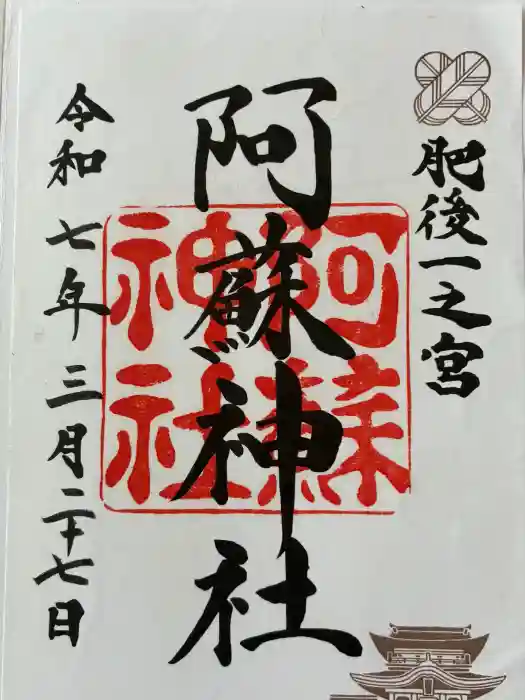 肥後一之宮
阿蘇神社
阿蘇神社
令和七年三月二十七日